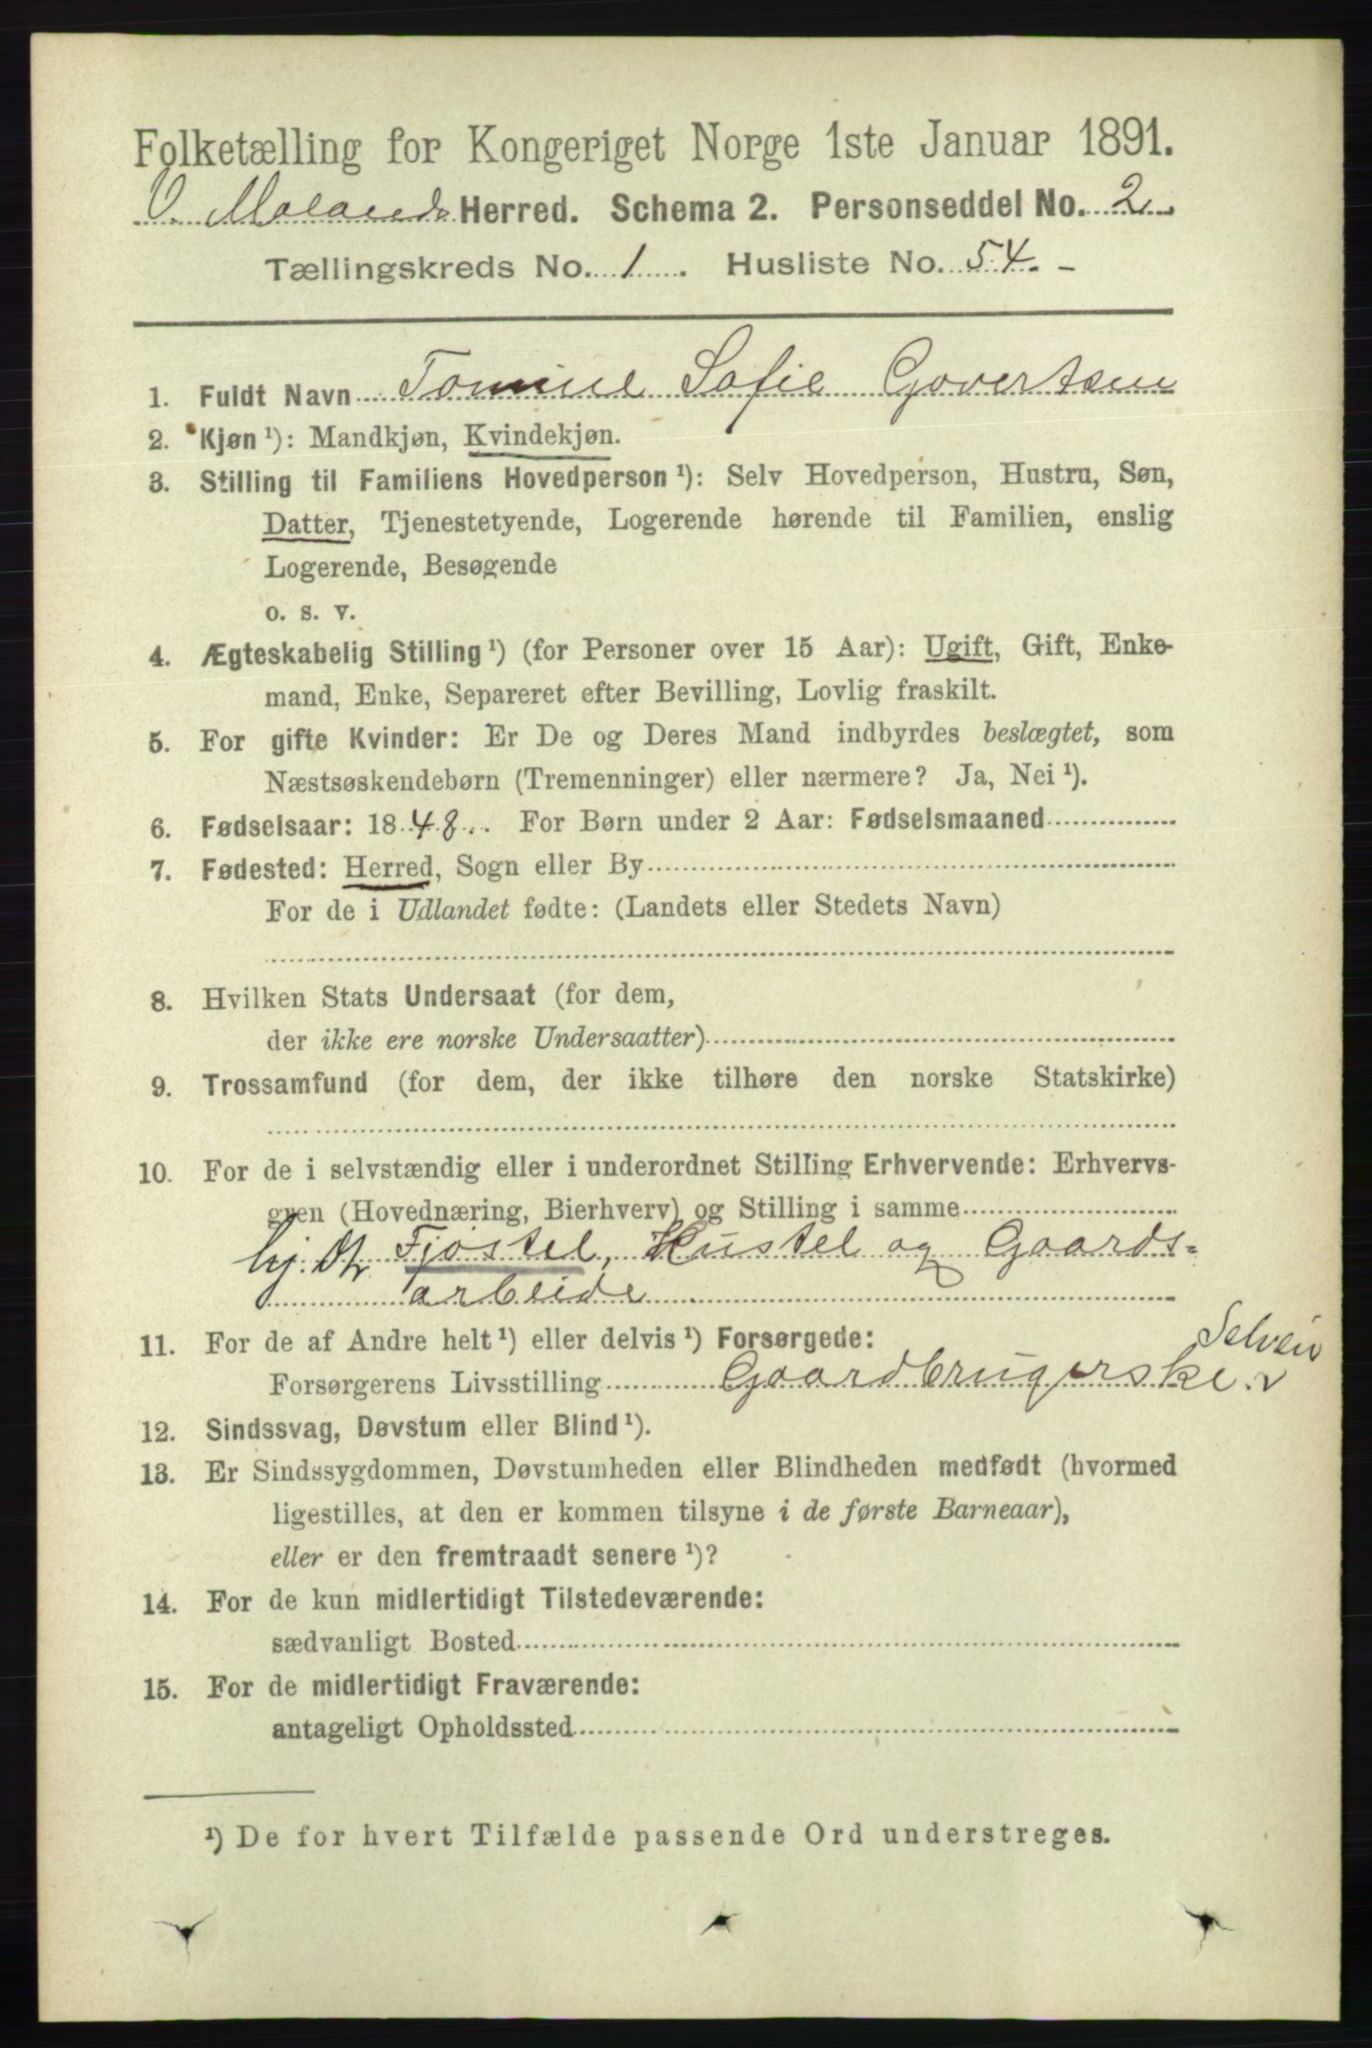 Folketælling for Kongeriget Norge 1ste Januar 1891.
Ø. Molands Herred. Schema 2. Personseddel No. 2
Tællingskreds No. 1. Husliste No. 54.
1. Fuldt Navn Tomine Sofie Govertsen
2. Kjøn ¹): Mandkjøn, Kvindekjøn.
3. Stilling til Familiens Hovedperson ¹): Selv Hovedperson, Hustru, Søn,
Datter, Tjenestetyende, Logerende hørende til Familien, enslig
Logerende, Besøgende
o. s. v.
4. Ægteskabelig Stilling ¹) (for Personer over 15 Aar): Ugift, Gift, Enke-
mand, Enke, Separeret efter Bevilling, Lovlig fraskilt.
5. For gifte Kvinder: Er De og Deres Mand indbyrdes beslægtet, som
Næstsøskendebørn (Tremenninger) eller nærmere? Ja, Nei ¹).
6. Fødselsaar: 1848. For Børn under 2 Aar: Fødselsmaaned
7. Fødested: Herred, Sogn eller By
For de i Udlandet fødte: (Landets eller Stedets Navn)
8. Hvilken Stats Undersaat (for dem,
der ikke ere norske Undersaatter)
9. Trossamfund (for dem, der ikke tilhøre den norske Statskirke)
10. For de i selvstændig eller i underordnet Stilling Erhvervende: Erhvervs-
gren (Hovednæring, Bierhverv) og Stilling i samme
hj. Dtr Fjøstel, Hustel og Gaards-
arbeide
11. For de af Andre helt ¹) eller delvis ¹) Forsørgede:
Forsørgerens Livsstilling Gaardbrugerske. Selveier
12. Sindssvag, Døvstum eller Blind ¹).
13. Er Sindssygdommen, Døvstumheden eller Blindheden medfødt (hvormed
ligestilles, at den er kommen tilsyne i de første Barneaar),
eller er den fremtraadt senere ¹)?
14. For de kun midlertidigt Tilstedeværende:
sædvanligt Bosted
15. For de midlertidigt Fraværende:
antageligt Opholdssted
¹) De for hvert Tilfælde passende Ord understreges.